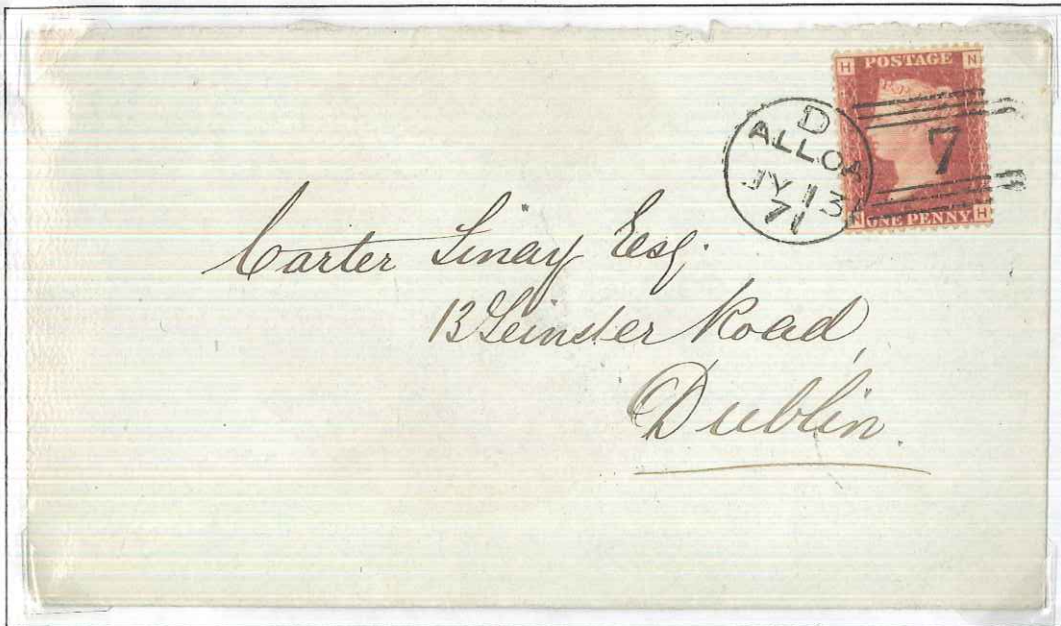 H POSTAGE N
D
ALLOA
JY 13
71
7
N ONE PENNY H
Carter Esq.
13 Leinster Road,
Dublin.